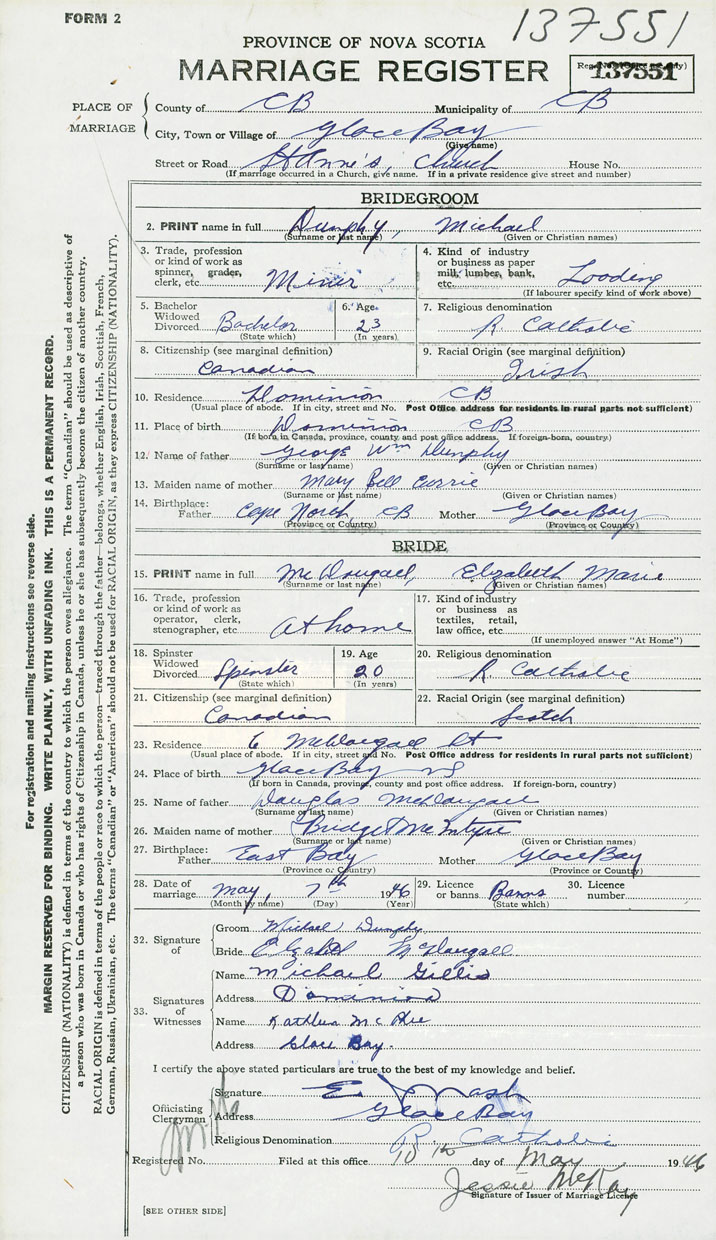 FORM 2
137551
PROVINCE OF NOVA SCOTIA
MARRIAGE REGISTER
137551
PLACE OF MARRIAGE
County of CB Municipality of CB
City, Town or Village of Glace Bay
(Give name)
Street or Road St Anne's, Church House No.
(If marriage occurred in a Church, give name. If in a private residence give street and number)
BRIDEGROOM
2. PRINT name in full Dunphy, Michael
(Surname or last name) (Given or Christian names)
3. Trade, profession or kind of work as spinner, grader, clerk, etc. Miner
4. Kind of industry or business as paper mill, lumber, bank, etc. Loading
(If labourer specify kind of work above)
5. Bachelor Widowed Divorced Bachelor
(State which)
6. Age 23
(In years)
7. Religious denomination R. Catholic
8. Citizenship (see marginal definition) Canadian
9. Racial Origin (see marginal definition) Irish
10. Residence Dominion CB
(Usual place of abode. If in city, street and No. Post Office address for residents in rural parts not sufficient)
11. Place of birth Dominion CB
(If born in Canada, province, county and post office address. If foreign-born, country.)
12. Name of father George Wm Dunphy
(Surname or last name) (Given or Christian names)
13. Maiden name of mother Mary Bell Currie
(Surname or last name) (Given or Christian names)
14. Birthplace: Father Cape North, CB Mother Glace Bay
(Province or Country) (Province or Country)
BRIDE
15. PRINT name in full McDougall, Elizabeth Marie
(Surname or last name) (Given or Christian names)
16. Trade, profession or kind of work as operator, clerk, stenographer, etc. At home
17. Kind of industry or business as textiles, retail, law office, etc.
(If unemployed answer "At Home")
18. Spinster Widowed Divorced Spinster
(State which)
19. Age 20
(In years)
20. Religious denomination R. Catholic
21. Citizenship (see marginal definition) Canadian
22. Racial Origin (see marginal definition) Scotch
23. Residence 6 McDougall St
(Usual place of abode. If in city, street and No. Post Office address for residents in rural parts not sufficient)
24. Place of birth Glace Bay NS
(If born in Canada, province, county and post office address. If foreign-born, country)
25. Name of father Douglas McDougall
(Surname or last name) (Given or Christian names)
26. Maiden name of mother Bridget McIntyre
(Surname or last name) (Given or Christian names)
27. Birthplace: Father East Bay Mother Glace Bay
(Province or Country) (Province or Country)
28. Date of marriage May, 7th 1946
(Month by name) (Day) (Year)
29. Licence or banns Banns
(State which)
30. Licence number
32. Signature of
Groom Michael Dunphy
Bride Elizabeth McDougall
33. Signatures of Witnesses
Name Michael Gillis
Address Dominion
Name Kathleen McPhee
Address Glace Bay.
I certify the above stated particulars are true to the best of my knowledge and belief.
Officiating Clergyman
Signature E. Nash
Address Glace Bay
Religious Denomination R. Catholic
Registered No. Filed at this office 10th day of May 1946
Jessie McKay
Signature of Issuer of Marriage Licence
[SEE OTHER SIDE]
For registration and mailing instructions see reverse side.
MARGIN RESERVED FOR BINDING. WRITE PLAINLY, WITH UNFADING INK. THIS IS A PERMANENT RECORD.
CITIZENSHIP (NATIONALITY) is defined in terms of the country to which the person owes allegiance. The term "Canadian" should be used as descriptive of
a person who was born in Canada or who has rights of Citizenship in Canada, unless he or she has subsequently become the citizen of another country.
RACIAL ORIGIN is defined in terms of the people or race to which the person—traced through the father—belongs, whether English, Irish, Scottish, French,
German, Russian, Ukrainian, etc. The terms "Canadian" or "American" should not be used for RACIAL ORIGIN, as they express CITIZENSHIP (NATIONALITY).